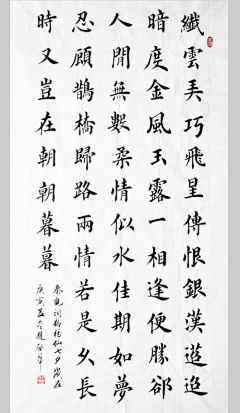 纖雲弄巧飛星傳恨銀漢迢迢
暗度金風玉露一相逢便勝卻
人間無數柔情似水佳期如夢
忍顧鵲橋歸路兩情若是久長
時又豈在朝朝暮暮
秦觀詞鵲橋仙七夕歲在
庚寅孟冬